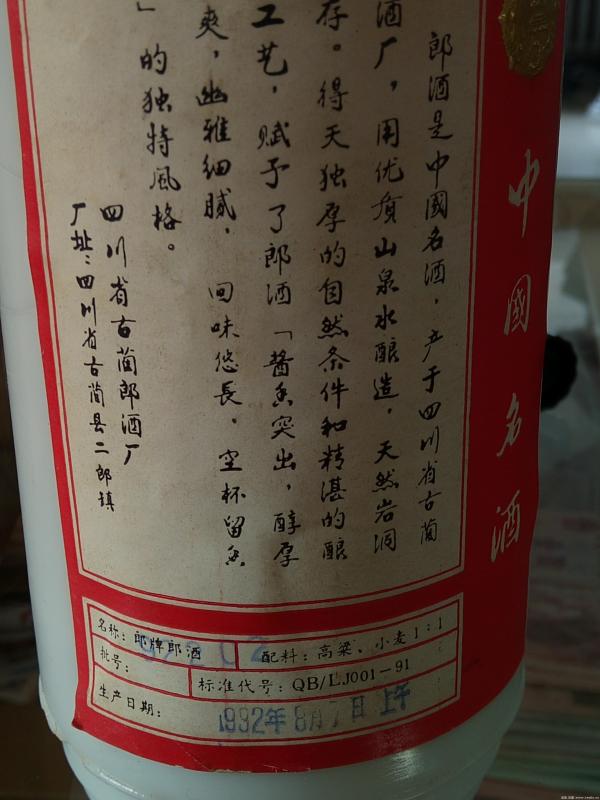 郎酒是中國名酒，产于四川省古蔺
酒厂，用优质山泉水酿造，天然岩洞
存。得天独厚的自然条件和精湛的酿
工艺，赋予了郎酒「酱香突出，醇厚
爽，幽雅细腻，回味悠長，空杯留香
」的独特風格。
四川省古蔺郎酒厂
厂址：四川省古蔺县二郎镇
中國名酒
名称：郎牌郎酒
配料：高粱、小麦1：1
批号：
标准代号：QB/LJ001-91
生产日期：
1992年8月7日 上午